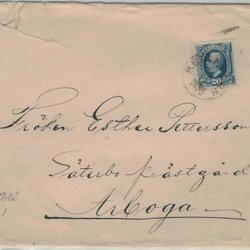 20
Fröken Esther Pettersson
Säterbo prästgård
Arboga